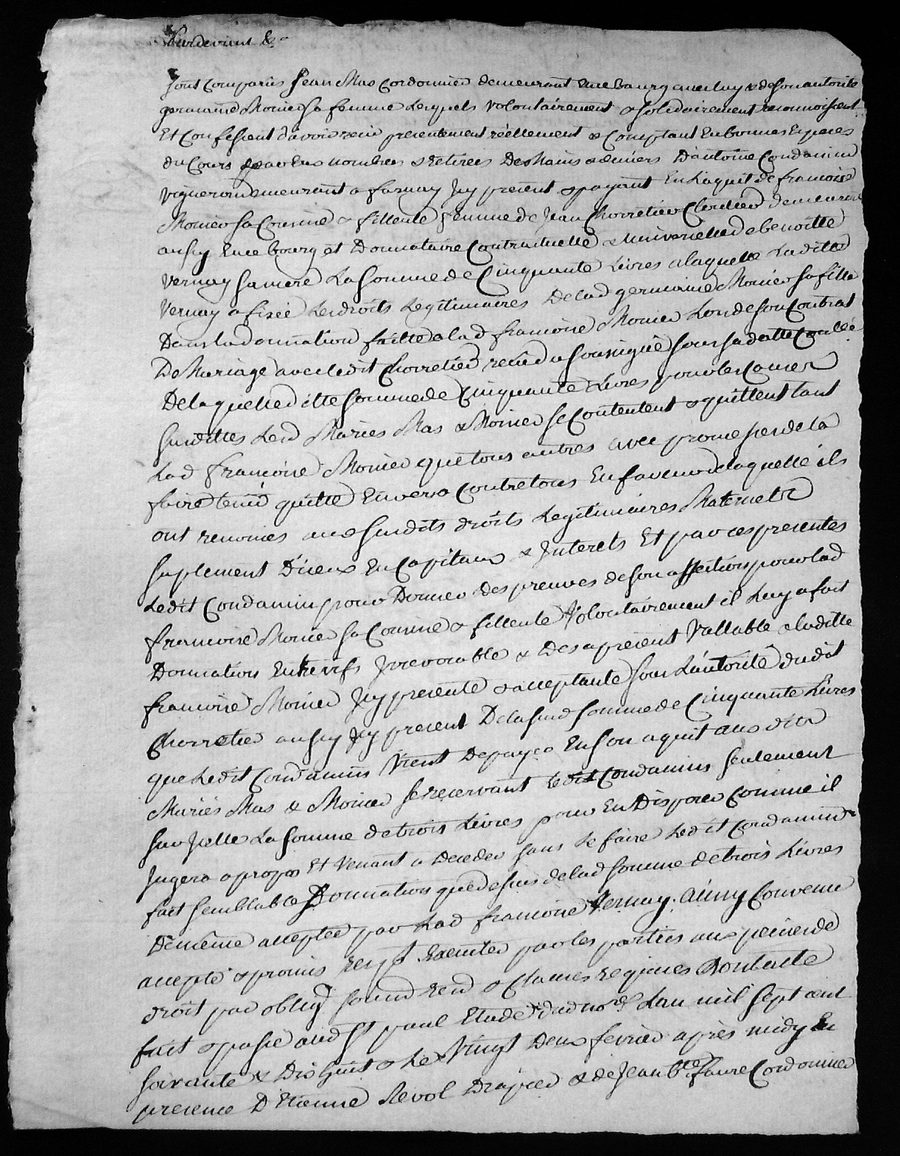 Pardevant &c
Sont Comparus Jean Mas Cordonnier demeurant Ence bourg avec luy & desonautorité
germaine Monier sa femme Lesquels Volontairement & solidairement reconnoissent
Et Confessent d'avoir reçu presentement réellement & Comptant En bonnes Espaces
du Cours par Eux nombrées & retirées Des Mains & deniers D'antoine Condamin
vigneron demeurant a farnay Jcy present & payant En l'aquit de francoise
Monier sa Cousine & filleule femme de Jean Chorretier Cloutier demeurant
aussy Ence bourg et Donnataire Contractuelle & universelle de benoitte
Vernay sa mere La somme de Cinquante Livres a laquelle Laditte
Vernay a fixée Les droits Legitimaires De lad germaine Monier sa fille
Dans la donnation faitte a lad francoise Monier Lors de son Contrat
De Mariage avec ledit Chorretier reçu du soussigné sous sa datte
De laquelle ditte somme de Cinquante Livres pour les Causes
susdittes Lesd Mariés Mas & Monier se Contentent & quittent tant
Lad francoise Monier que tous autres avec promesse de la
faire tenir quitte Envers & Contre tous En faveur de laquelle ils
ont renoncés aux susdits droits Legitimaires Maternels
suplement D'iceux En Capitaux & Interets Et par ces presentes
Ledit Condamin pour Donner des preuves de son affection pour lad
francoise Monier sa Cousine & filleule Volontairement il Luy a fait
Donnation Entrevifs Jrrevocable & Desapresent Vallable a laditte
francoise Monier Jcy presente & acceptante sous L'autorité dudit
Chorretier aussy Jcy present De la susd somme de Cinquante Livres
que Ledit Condamin Vient De payer En son aquit aux dits
Mariés Mas & Monier se reservant Ledit Condamin seulement
sur Jcelle La somme de trois Livres pour En Disposer Comme il
Jugera apropos Et Venant a Deceder sans le faire Ledit Condamin
fait semblable Donnation que dessus de lad somme de trois Livres
De même acceptée par Lad francoise Vernay. Ainsy Convenu
accepté & promis Executer par les parties aux peines de
droit par oblig soumis & Clauses requises
fait & passé aud St paul Etude dud no.e Lan mil sept cent
soixante & Dix huit & Le Vingt Deux fevrier après midy En
presence D'Etienne Revol Drapier & de Jean Bte faure Cordonnier